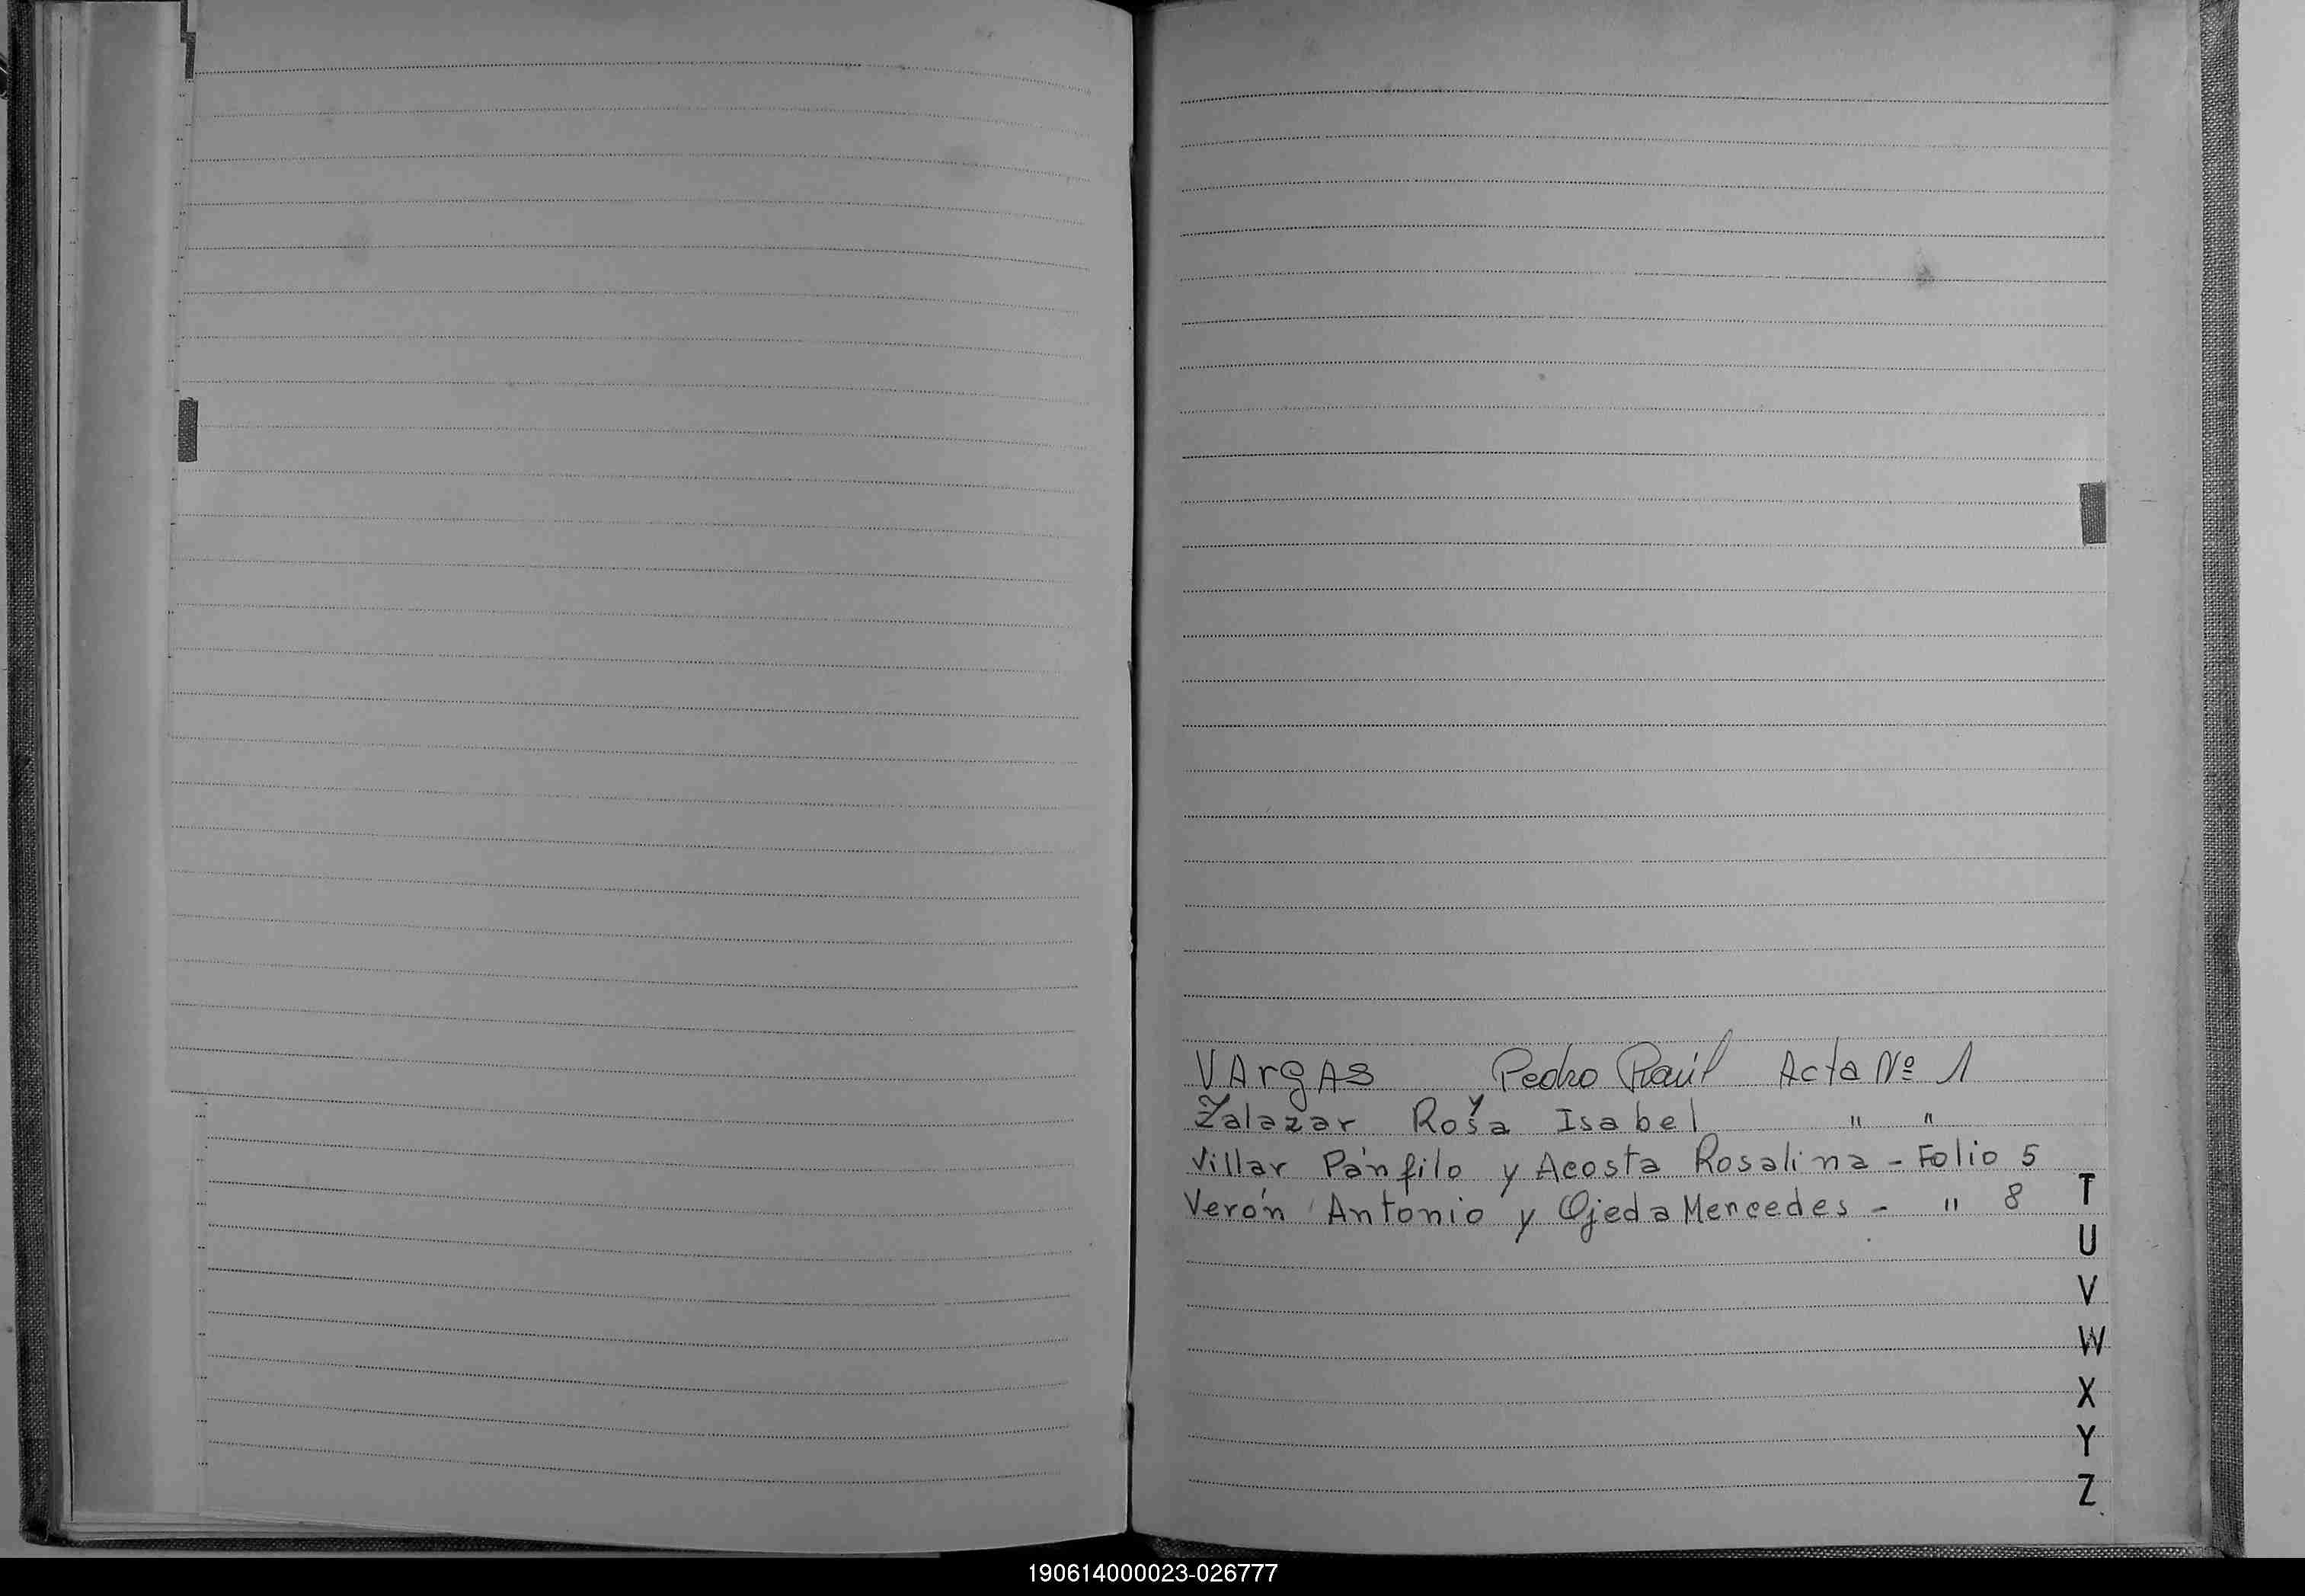 VArgAS Pedro Raúl Acta Nº 1
y
Zalazar Rosa Isabel " "
Villar Pánfilo y Acosta Rosalina - Folio 5
Verón Antonio y Ojeda Mercedes - " 8
T
U
V
W
X
Y
Z
190614000023-026777